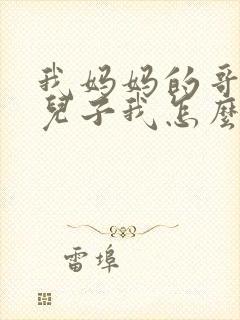 我妈妈的哥
兒子我怎麼
雷埠